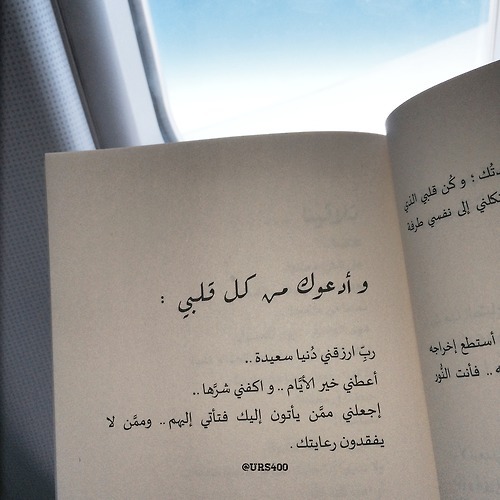 و أدعوك من كل قلبي :
ربِّ ارزقني دُنيا سعيدة ..
أعطني خير الأيَّام .. و اكفني شرَّها ..
إجعلني ممَّن يأتون إليك فتأتي إليهم .. وممَّن لا
يفقدون رعايتك .
@URS400
؛ و كُن قلبي الذي
تكلني إلى نفسي طرفة
أستطع إخراجه
.. فأنت النُّور